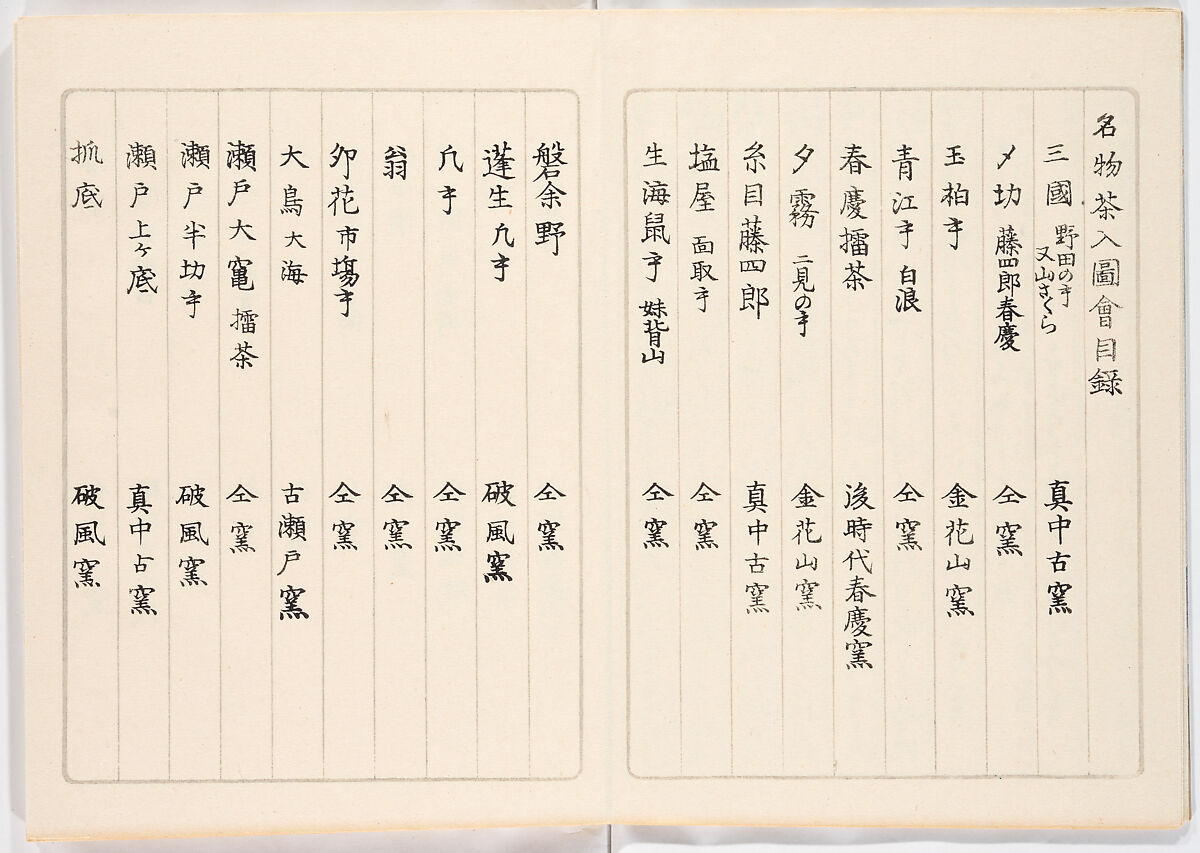 名物茶入圖會目錄
三國 野田の手 又山さくら 真中古窯
〆切 藤四郎春慶 仝窯
玉柏手 金花山窯
青江手 白浪 仝窯
春慶擂茶 後時代春慶窯
夕霧 二見の手 金花山窯
糸目藤四郎 真中古窯
塩屋 面取手 仝窯
生海鼠手 妹背山 仝窯
磐余野 仝窯
蓬生凡手 破風窯
凡手 仝窯
翁 仝窯
卯花市場手 仝窯
大鳥大海 古瀬戸窯
瀬戸大竃 擂茶 仝窯
瀬戸半切手 破風窯
瀬戸上ヶ底 真中古窯
抓底 破風窯